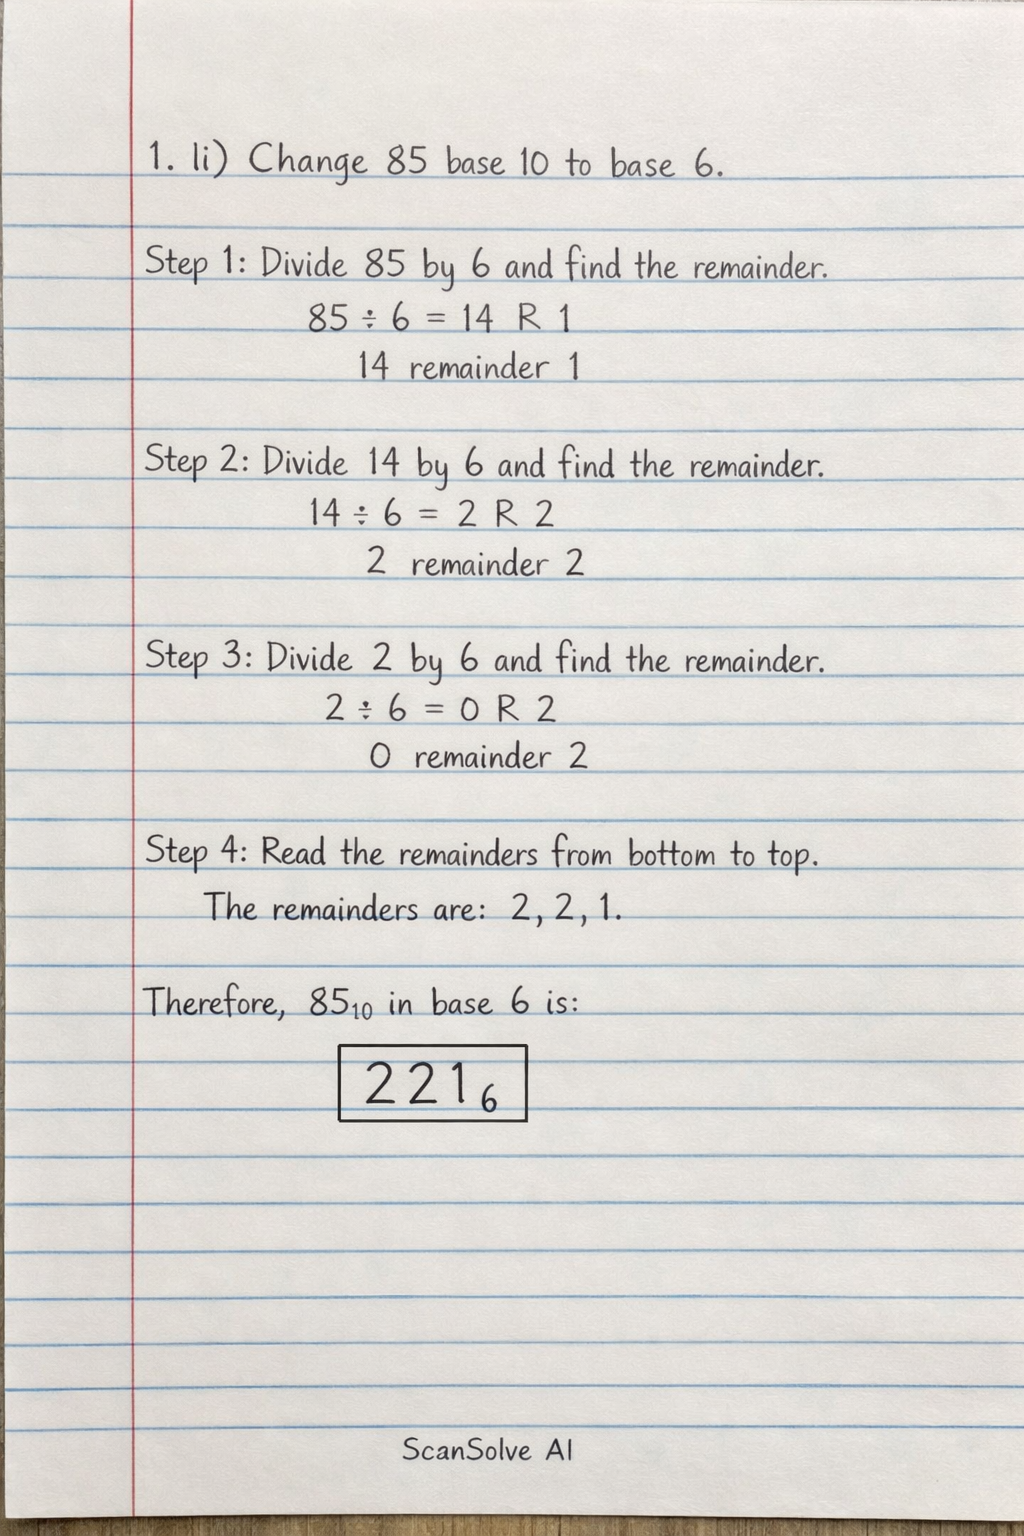 1. li) Change 85 base 10 to base 6.
Step 1: Divide 85 by 6 and find the remainder.
85 ÷ 6 = 14 R 1
14 remainder 1
Step 2: Divide 14 by 6 and find the remainder.
14 ÷ 6 = 2 R 2
2 remainder 2
Step 3: Divide 2 by 6 and find the remainder.
2 ÷ 6 = 0 R 2
0 remainder 2
Step 4: Read the remainders from bottom to top.
The remainders are: 2, 2, 1.
Therefore, 85₁₀ in base 6 is:
221₆
ScanSolve AI